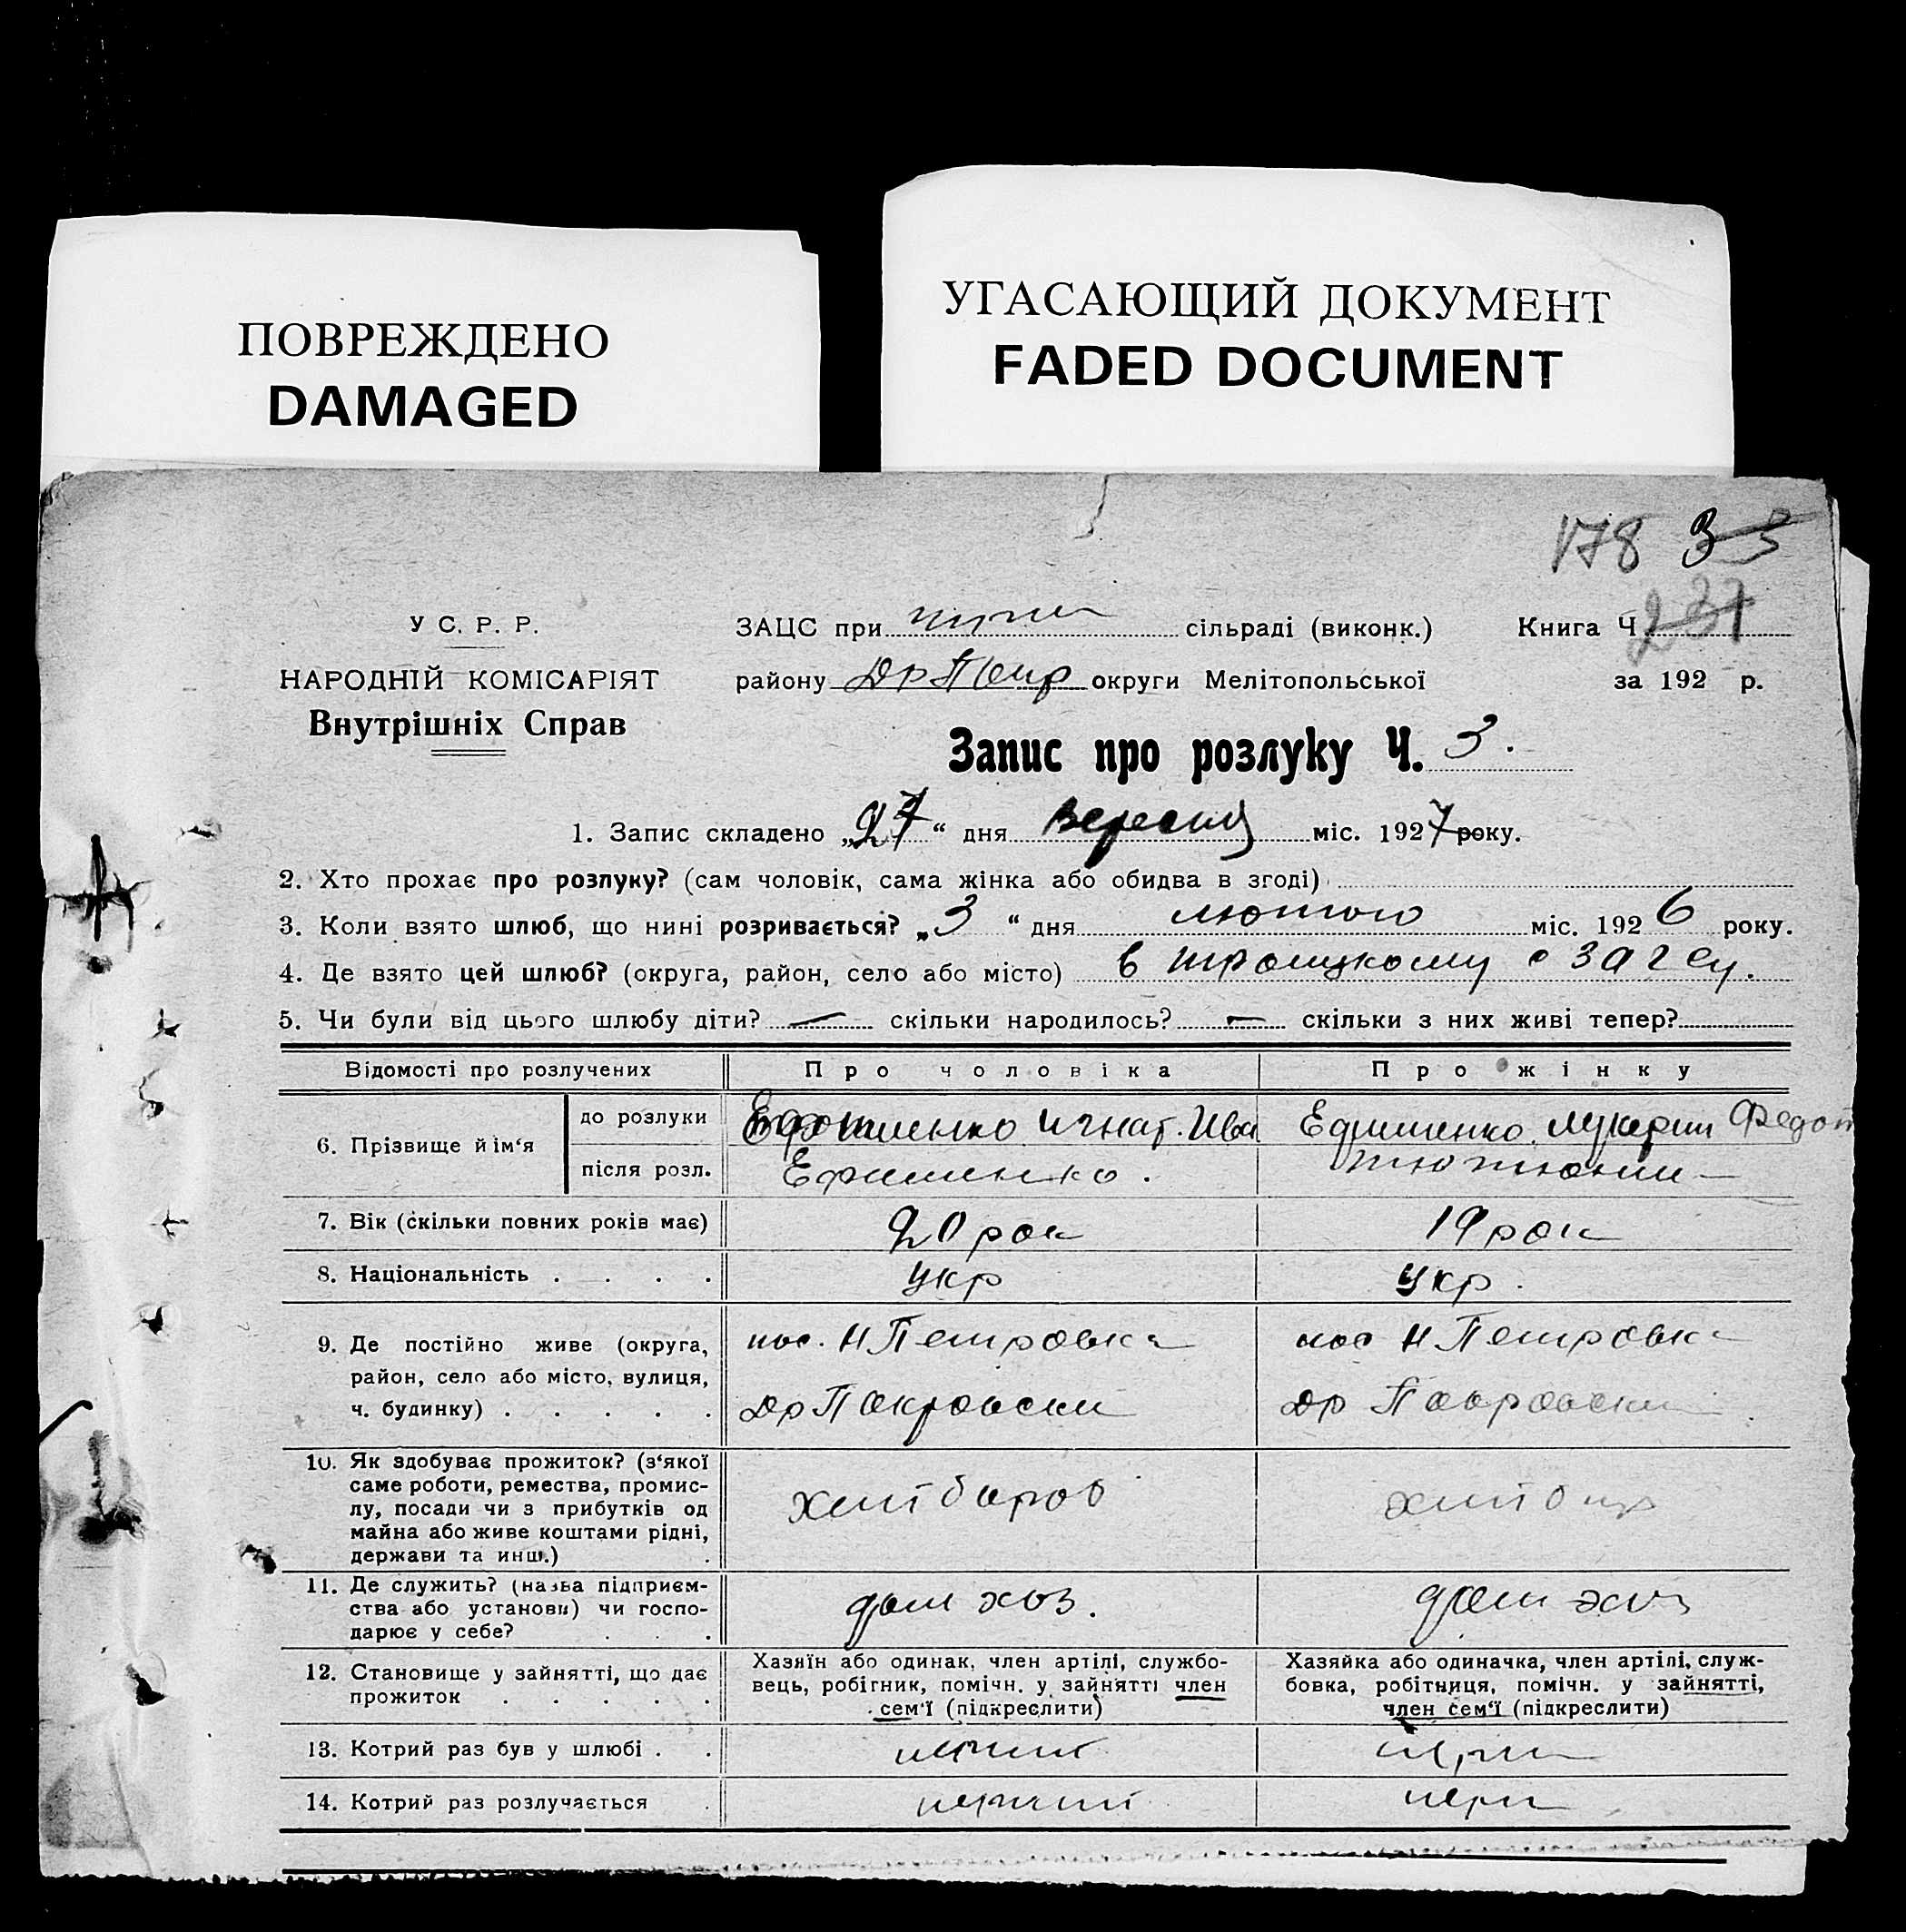 ПОВРЕЖДЕНО
DAMAGED
УГАСАЮЩИЙ ДОКУМЕНТ
FADED DOCUMENT
178 33
237
У С. Р. Р.
НАРОДНІЙ КОМІСАРІЯТ
Внутрішніх Справ
ЗАЦС при сільраді (виконк.) Книга Ч
району округи Мелітопольської за 192 р.
Запис про розлуку Ч. 3.
1. Запис складено „27“ дня вересня міс. 1927 року.
2. Хто прохає про розлуку? (сам чоловік, сама жінка або обидва в згоді)
3. Коли взято шлюб, що нині розривається? „3“ дня лютого міс. 1926 року.
4. Де взято цей шлюб? (округа, район, село або місто) в троицкому загсу.
5. Чи були від цього шлюбу діти? — скільки народилось? — скільки з них живі тепер?
Відомості про розлучених Про чоловіка Про жінку
6. Прізвище й ім‘я до розлуки Ефименко Игнат. Ива Ефименко Лукерии Федот
після розл. Ефименко.
7. Вік (скільки повних років має) 20 рок 19 рок
8. Національність . . . . укр укр.
9. Де постійно живе (округа, район, село або місто, вулиця, ч. будинку) . . . . .
пос. Н Петровка пос Н Петровка
Др Покровски Др Покровски
10. Як здобуває прожиток? (з‘якої саме роботи, ремества, промислу, посади чи з прибутків од майна або живе коштами рідні, держави та инш.)
хлібороб
11. Де служить? (назва підприємства або установи) чи господарює у себе? . . .
дом хоз. дом хоз
12. Становище у зайнятті, що дає прожиток . . . . .
Хазяїн або одинак, член артілі, службовець, робітник, помічн. у зайнятті член сем‘ї (підкреслити)
Хазяйка або одиначка, член артілі, службовка, робітниця, помічн. у зайнятті, член сем‘ї (підкреслити)
13. Котрий раз був у шлюбі . .
14. Котрий раз розлучається .